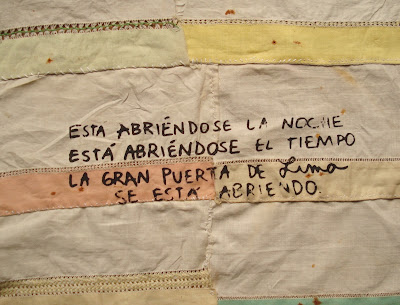 ESTA ABRIÉNDOSE LA NOCHE
ESTÁ ABRIÉNDOSE EL TIEMPO
LA GRAN PUERTA DE Lima
SE ESTÁ ABRIENDO.